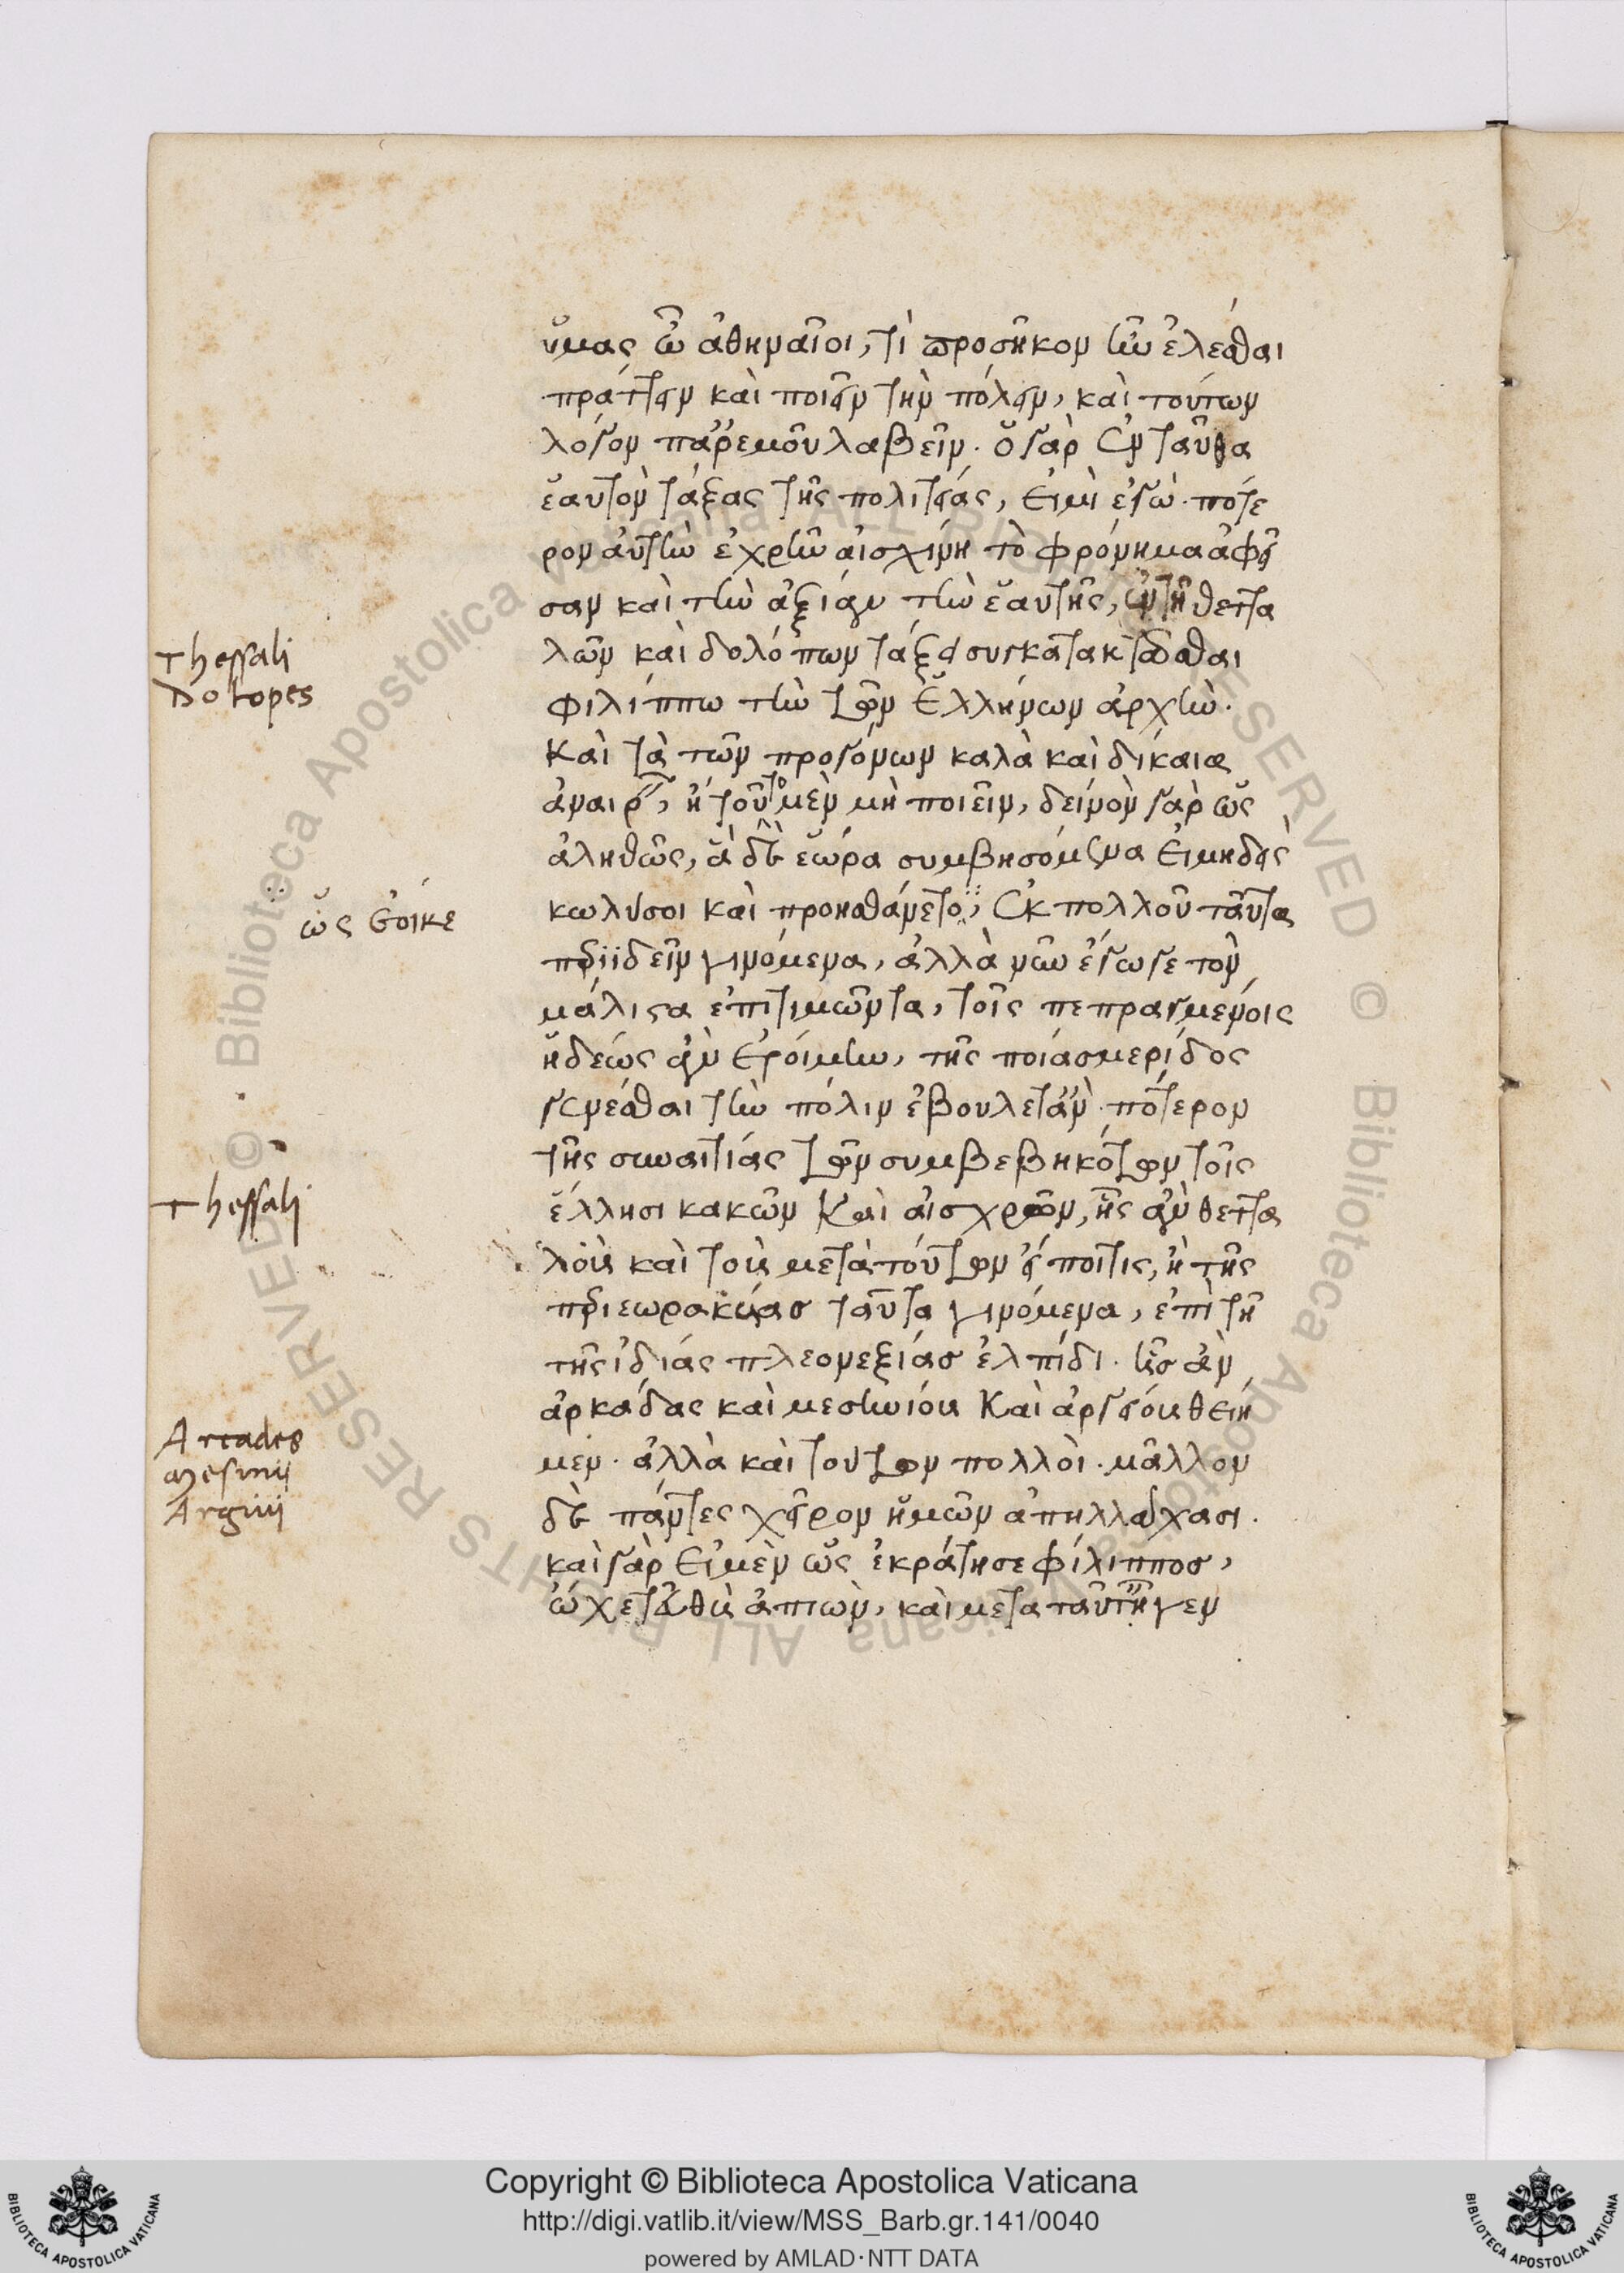 ὕμας ὦ ἀθηναῖοι, τί προσῆκον ἦν ἑλέσθαι
πράττειν καὶ ποιεῖν τὴν πόλιν, καὶ τούτων
λόγον παρ' ἐμοῦ λαβεῖν· ὁ γὰρ ἐνταῦθα
ἑαυτὸν τάξας τῆς πολιτείας, εἰμὶ ἐγώ· πότε
ρον αὐτὴν ἐχρῆν αἰσχίνη τὸ φρόνημα ἀφεῖ
σαν καὶ τὴν ἀξίαν τὴν ἑαυτῆς, ἐν τῇ θεττα
λῶν καὶ δολόπων τάξει συγκατακτᾶσθαι
φιλίππω τὴν τῶν ἑλλήνων ἀρχήν·
καὶ τὰ τῶν προγόνων καλὰ καὶ δίκαια
ἀναιρεῖν, ἢ τοῦτο μὲν μὴ ποιεῖν, δεινὸν γὰρ ὡς
ἀληθῶς, ἃ δὲ ἑώρα συμβησόμενα εἰ μηδεὶς
κωλύσοι καὶ προηισθάνετο, ἐκ πολλοῦ ταῦτα
περιιδεῖν γινόμενα, ἀλλὰ νῦν ἔγωγε τὸν
μάλιστα ἐπιτιμῶντα, τοῖς πεπραγμένοις
ἡδέως ἂν ἐροίμην, τῆς ποίας μερίδος
γενέσθαι τὴν πόλιν ἐβούλετ' ἄν· πότερον
τῆς συναιτίας τῶν συμβεβηκότων τοῖς
ἕλλησι κακῶν καὶ αἰσχρῶν, ἧς ἂν θεττα
λοὺς καὶ τοὺς μετὰ τούτων εἴποι τις, ἢ τῆς
περιεωρακυίας ταῦτα γινόμενα, ἐπὶ τῇ
τῆς ἰδίας πλεονεξίας ἐλπίδι· ἧς ἂν
ἀρκάδας καὶ μεσηνίους καὶ ἀργείους θείη
μεν· ἀλλὰ καὶ τούτων πολλοὶ· μᾶλλον
δὲ πάντες χεῖρον ἡμῶν ἀπηλλάχασι·
καὶ γὰρ εἰ μὲν ὡς ἐκράτησε φίλιππος,
ᾤχετ' εὐθὺς ἀπιὼν, καὶ μετὰ ταῦτ' ἦγεν
Thessali
Dolopes
ὡς ἔοικε
Thessali
Arcades
Mesinij
Argiui
Copyright © Biblioteca Apostolica Vaticana
http://digi.vatlib.it/view/MSS_Barb.gr.141/0040
powered by AMLAD·NTT DATA
BIBLIOTECA APOSTOLICA VATICANA
BIBLIOTECA APOSTOLICA VATICANA
© Biblioteca Apostolica Vaticana ALL RIGHTS RESERVED
© Biblioteca Apostolica Vaticana ALL RIGHTS RESERVED